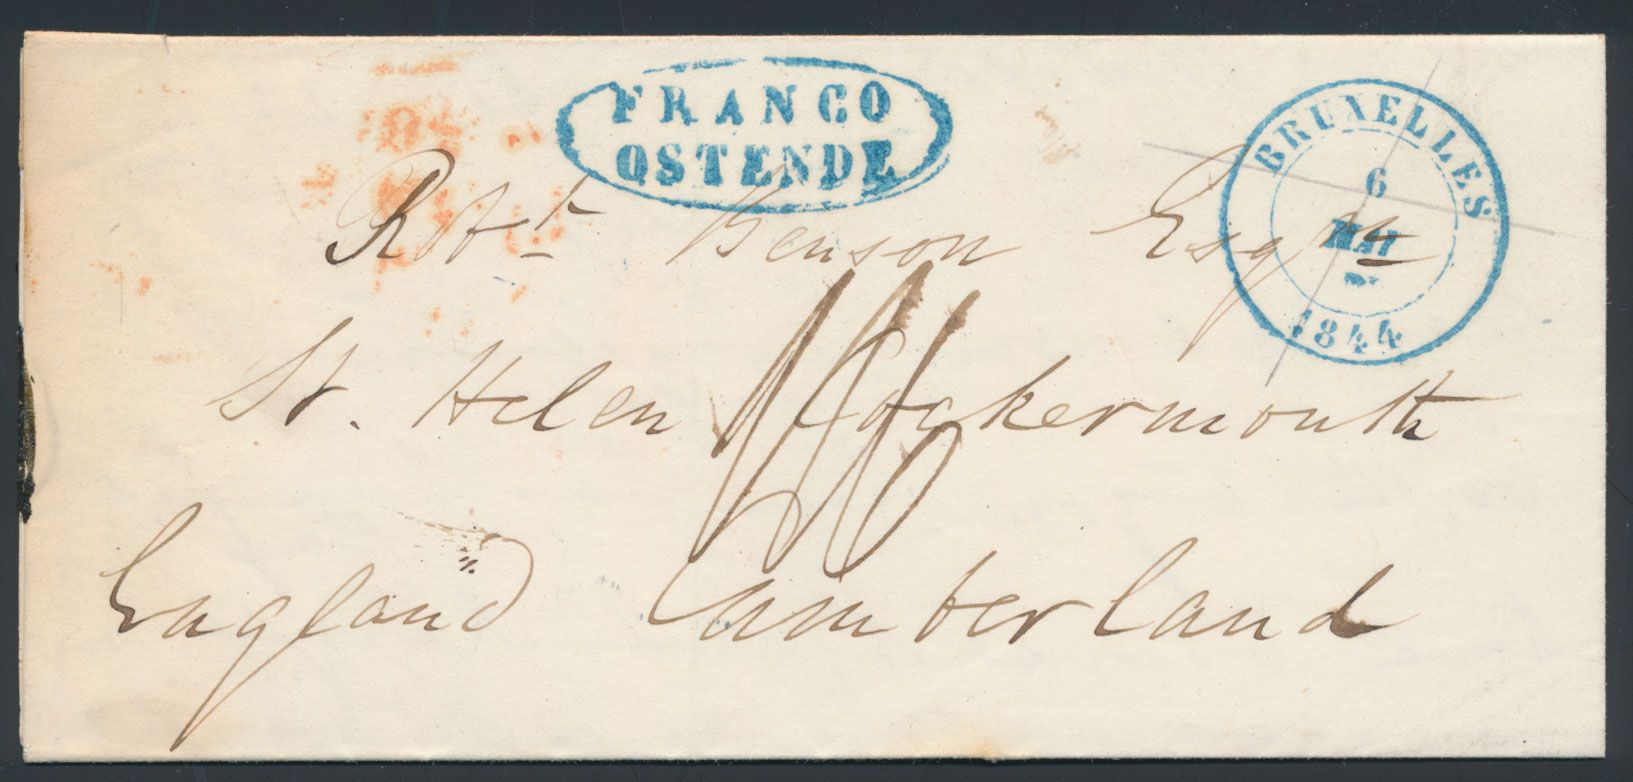 FRANCO
OSTENDE
BRUXELLES
6
MAI
1844
Robt Benson Esqre
St. Helen Cockermouth
England Cumberland